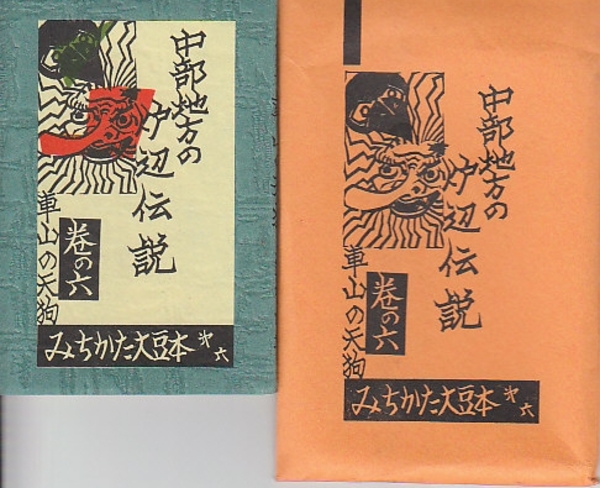 中部地方の
炉辺伝説
巻の六
車山の天狗
みちかた大豆本 第六
中部地方の
炉辺伝説
巻の六
車山の天狗
みちかた大豆本 第六